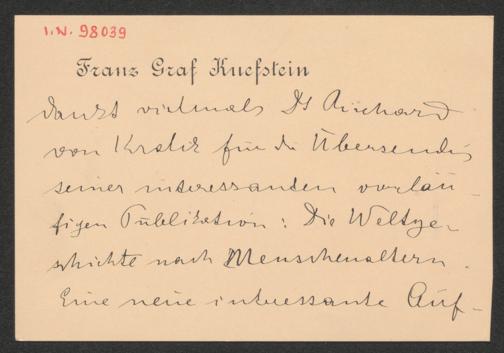 I.N. 98039
Franz Graf Kuefstein
dankt vielmals Dr Richard
von Kralik für die Übersendung
seiner interessanten vorläu-
figen Publikation: Die Weltge-
schichte nach Menschenaltern.
Eine neue interessante Auf-